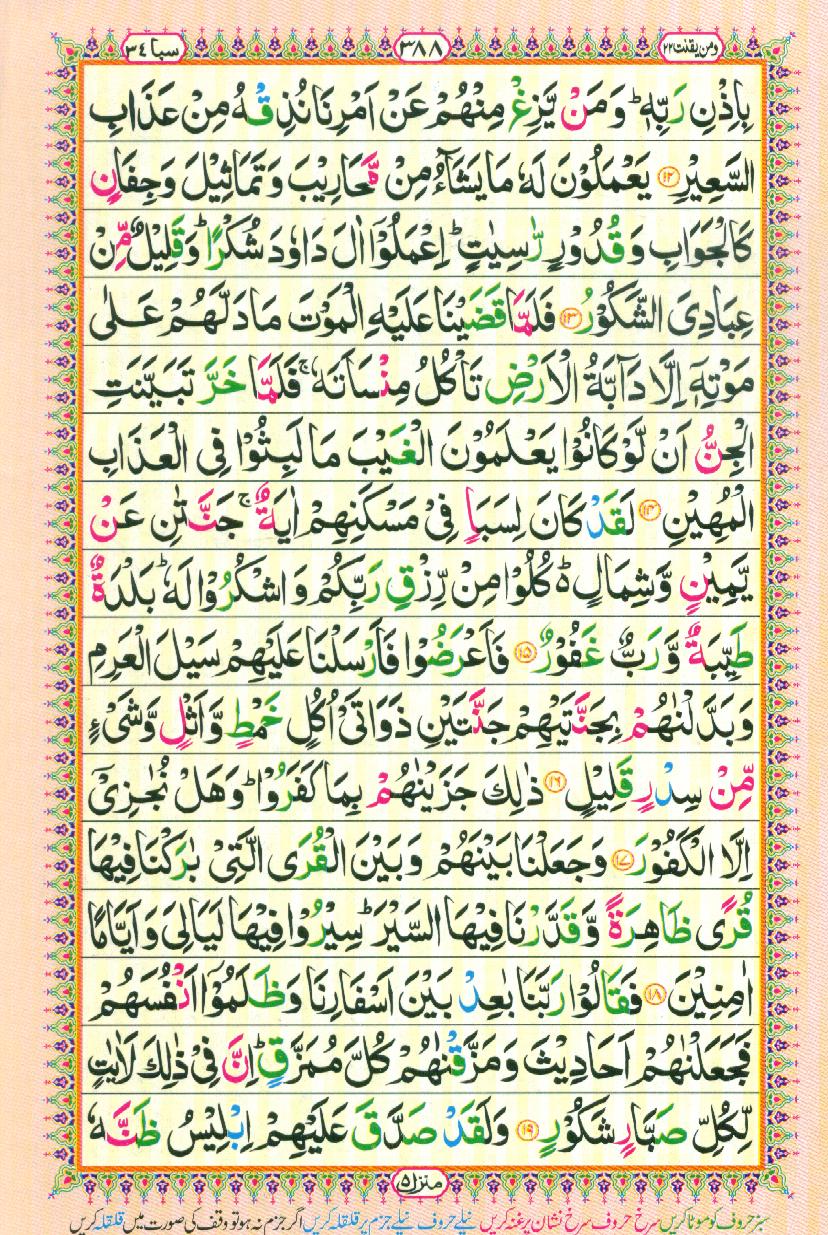 ومن يقنت ٢٢ ٣٨٨ سبا ٣٤
بِاِذْنِ رَبِّهٖ ؕ وَ مَنْ یَّزِغْ مِنْهُمْ عَنْ اَمْرِنَا نُذِقْهُ مِنْ عَذَابِ
السَّعِیْرِ ﴿۱۲﴾ یَعْمَلُوْنَ لَهٗ مَا یَشَآءُ مِنْ مَّحَارِیْبَ وَ تَمَاثِیْلَ وَ جِفَانٍ
كَالْجَوَابِ وَ قُدُوْرٍ رّٰسِیٰتٍ ؕ اِعْمَلُوْۤا اٰلَ دَاوٗدَ شُكْرًا ؕ وَ قَلِیْلٌ مِّنْ
عِبَادِیَ الشَّكُوْرُ ﴿۱۳﴾ فَلَمَّا قَضَیْنَا عَلَیْهِ الْمَوْتَ مَا دَلَّهُمْ عَلٰى
مَوْتِهٖۤ اِلَّا دَآبَّةُ الْاَرْضِ تَاْكُلُ مِنْسَاَتَهٗ ۚ فَلَمَّا خَرَّ تَبَیَّنَتِ
الْجِنُّ اَنْ لَّوْ كَانُوْا یَعْلَمُوْنَ الْغَیْبَ مَا لَبِثُوْا فِی الْعَذَابِ
الْمُهِیْنِ ﴿۱۴﴾ لَقَدْ كَانَ لِسَبَاٍ فِیْ مَسْكَنِهِمْ اٰیَةٌ ۚ جَنَّتٰنِ عَنْ
یَّمِیْنٍ وَّ شِمَالٍ ؕ۬ كُلُوْا مِنْ رِّزْقِ رَبِّكُمْ وَ اشْكُرُوْا لَهٗ ؕ بَلْدَةٌ
طَیِّبَةٌ وَّ رَبٌّ غَفُوْرٌ ﴿۱۵﴾ فَاَعْرَضُوْا فَاَرْسَلْنَا عَلَیْهِمْ سَیْلَ الْعَرِمِ
وَ بَدَّلْنٰهُمْ بِجَنَّتَیْهِمْ جَنَّتَیْنِ ذَوَاتَیْ اُكُلٍ خَمْطٍ وَّ اَثْلٍ وَّ شَیْءٍ
مِّنْ سِدْرٍ قَلِیْلٍ ﴿۱۶﴾ ذٰلِكَ جَزَیْنٰهُمْ بِمَا كَفَرُوْا ؕ وَ هَلْ نُجٰزِیْۤ
اِلَّا الْكَفُوْرَ ﴿۱۷﴾ وَ جَعَلْنَا بَیْنَهُمْ وَ بَیْنَ الْقُرَى الَّتِیْ بٰرَكْنَا فِیْهَا
قُرًى ظَاهِرَةً وَّ قَدَّرْنَا فِیْهَا السَّیْرَ ؕ سِیْرُوْا فِیْهَا لَیَالِیَ وَ اَیَّامًا
اٰمِنِیْنَ ﴿۱۸﴾ فَقَالُوْا رَبَّنَا بٰعِدْ بَیْنَ اَسْفَارِنَا وَ ظَلَمُوْۤا اَنْفُسَهُمْ
فَجَعَلْنٰهُمْ اَحَادِیْثَ وَ مَزَّقْنٰهُمْ كُلَّ مُمَزَّقٍ ؕ اِنَّ فِیْ ذٰلِكَ لَاٰیٰتٍ
لِّكُلِّ صَبَّارٍ شَكُوْرٍ ﴿۱۹﴾ وَ لَقَدْ صَدَّقَ عَلَیْهِمْ اِبْلِیْسُ ظَنَّهٗ
منزل ۵
سبز حروف کو موٹا کریں سرخ حروف سرخ نشان پر غنہ کریں نیلے حروف نیلے جزم پر قلقلہ کریں اگر جزم نہ ہو تو وقف کی صورت میں قلقلہ کریں